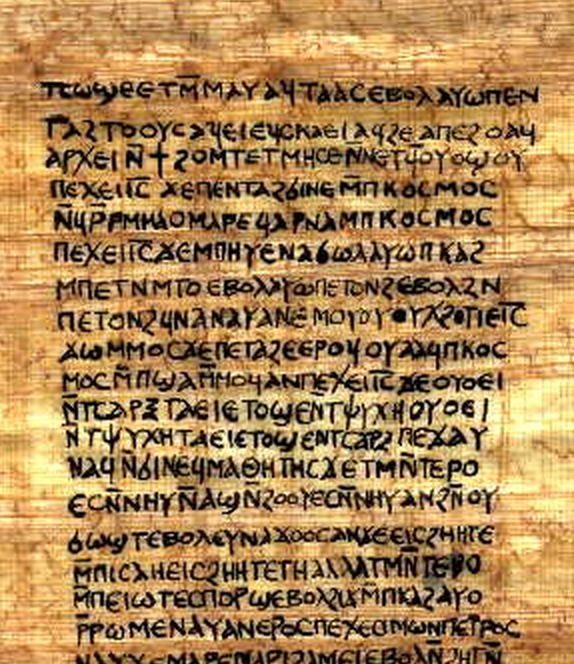 ⲡⲥⲱϣⲉⲉⲧⲙ̅ⲙⲁⲩⲁϥⲧⲁⲁⲥⲉⲃⲟⲗⲁⲩⲱⲡⲉⲛ
ⲧⲁϩⲧⲟⲟⲩⲥⲁϥⲉⲓⲉϥⲥⲕⲁⲉⲓⲁϥϩⲉⲁⲡⲉϩⲟⲁϥ
ⲁⲣⲭⲉⲓⲛ̅ϯϩⲟⲙⲧⲉⲧⲙⲏⲥⲉⲛ̅ⲛⲉⲧϥⲟⲩⲟϣⲟⲩ
ⲡⲉϫⲉⲓ̅ⲥ̅ϫⲉⲡⲉⲛⲧⲁϩϭⲓⲛⲉⲙ̅ⲡⲕⲟⲥⲙⲟⲥ
ⲛ̅ϥⲣ̅ⲣⲙⲙⲁⲟⲙⲁⲣⲉϥⲁⲣⲛⲁⲙⲡⲕⲟⲥⲙⲟⲥ
ⲡⲉϫⲉⲓ̅ⲥ̅ϫⲉⲙⲡⲏⲩⲉⲛⲁϭⲱⲗⲁⲩⲱⲡⲕⲁϩ
ⲙⲡⲉⲧⲛⲙⲧⲟⲉⲃⲟⲗⲁⲩⲱⲡⲉⲧⲟⲛϩⲉⲃⲟⲗϩⲛ
ⲡⲉⲧⲟⲛϩϥⲛⲁⲛⲁⲩⲁⲛⲉⲙⲟⲩⲟⲩⲭϩⲟⲧⲓⲉⲓ̅ⲥ̅
ϫⲱⲙⲙⲟⲥϫⲉⲡⲉⲧⲁϩⲉⲉⲣⲟϥⲟⲩⲁⲁϥⲡⲕⲟⲥ
ⲙⲟⲥⲙ̅ⲡϣⲁⲙ̅ⲙⲟϥⲁⲛⲡⲉϫⲉⲓ̅ⲥ̅ϫⲉⲟⲩⲟⲉⲓ
ⲛ̅ⲧⲥⲁⲣⲝⲧⲁⲉⲓⲉⲧⲟϣⲉⲛ̅ⲧⲯⲩⲭⲏⲟⲩⲟⲉⲓ
ⲛ̅ⲧⲯⲩⲭⲏⲧⲁⲉⲓⲉⲧⲟϣⲉⲛⲧⲥⲁⲣⲝⲡⲉϫⲁⲩ
ⲛⲁϥⲛ̅ϭⲓⲛⲉϥⲙⲁⲑⲏⲧⲏⲥϫⲉⲧⲙⲛ̅ⲧⲉⲣⲟ
ⲉⲥⲛ̅ⲛⲏⲩⲛ̅ⲁϣⲛ̅ϩⲟⲟⲩⲉⲥⲛ̅ⲛⲏⲩⲁⲛϩⲛ̅ⲟⲩ
ϭⲱϣⲧⲉⲃⲟⲗⲉⲩⲛⲁϫⲟⲟⲥⲁⲛϫⲉⲉⲓⲥϩⲏⲏⲧⲉ
ⲙ̅ⲡⲓⲥⲁⲏⲉⲓⲥϩⲏⲏⲧⲉⲧⲏⲁⲗⲗⲁⲧⲙⲛ̅ⲧⲉⲣⲟ
ⲙ̅ⲡⲉⲓⲱⲧⲉⲥⲡⲟⲣϣⲉⲃⲟⲗϩⲓϫⲙ̅ⲡⲕⲁϩⲁⲩⲱ
ⲣ̅ⲣⲱⲙⲉⲛⲁⲩⲁⲛⲉⲣⲟⲥⲡⲉϫⲉⲥⲓⲙⲱⲛⲡⲉⲧⲣⲟⲥ
ⲛⲁⲩϫⲉⲙⲁⲣⲉⲙⲁⲣⲓϩⲁⲙⲉⲓⲉⲃⲟⲗⲛ̅ϩⲏⲧⲛ̅